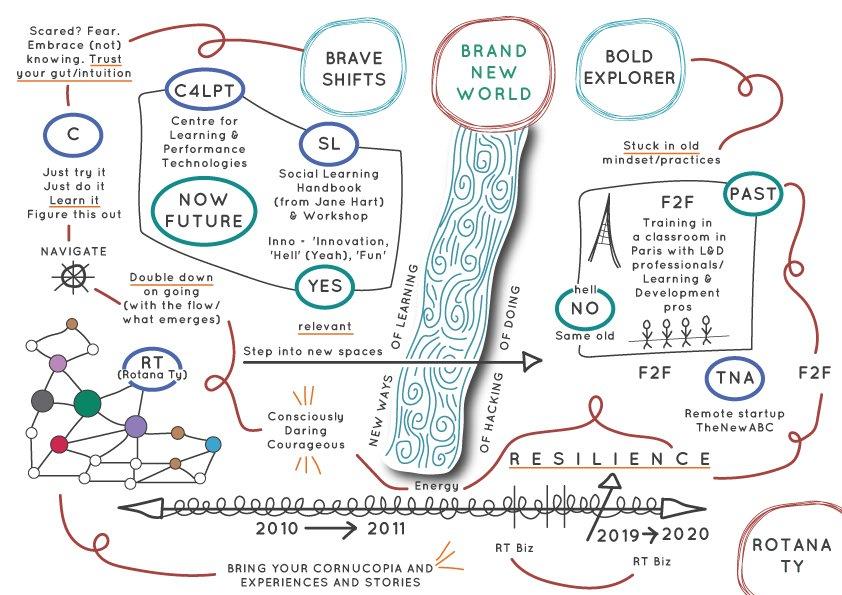 Scared? Fear.
Embrace (not)
knowing. Trust
your gut/intuition
C
Just try it
Just do it
Learn it
Figure this out
NAVIGATE
Double down
on going
(with the flow/
what emerges)
RT
(Rotana Ty)
C4LPT
Centre for
Learning &
Performance
Technologies
NOW
FUTURE
SL
Social Learning
Handbook
(from Jane Hart)
& Workshop
Inno - 'Innovation,
'Hell' (Yeah), 'Fun'
YES
relevant
Step into new spaces
Consciously
Daring
Courageous
BRAVE
SHIFTS
BRAND
NEW
WORLD
BOLD
EXPLORER
NEW WAYS
OF LEARNING
OF HACKING
OF DOING
Stuck in old
mindset/practices
PAST
F2F
Training in
a classroom in
Paris with L&D
professionals/
Learning &
Development
pros
hell
NO
Same old
F2F
TNA
F2F
Remote startup
TheNewABC
RESILIENCE
Energy
2010
2011
2019
2020
RT Biz
RT Biz
BRING YOUR CORNUCOPIA AND
EXPERIENCES AND STORIES
ROTANA
TY